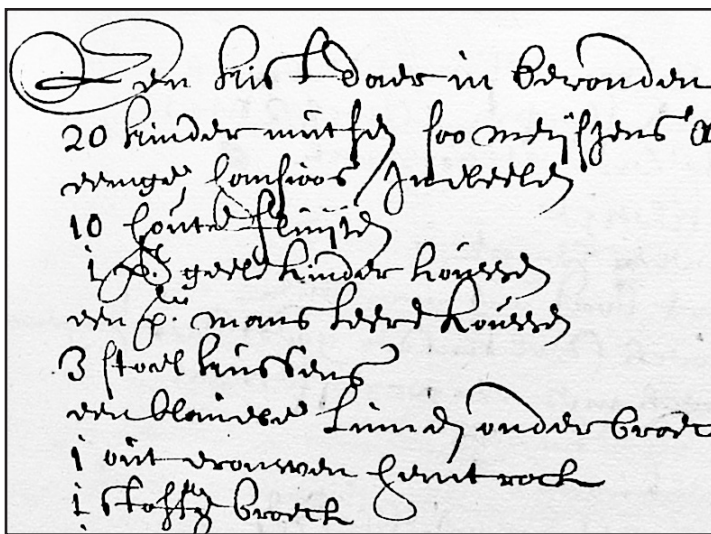 Een kist daer in bevonden
20 kinder mutsen soo meijsjens
eenige
10 houte fluijten
1 p.r geele kinder kousen
een p.r mans leere kousen
3 stoel kussens
een blauwe linnen onderbroeck
1 out vrouwen hemtrock
1 stoffe broeck